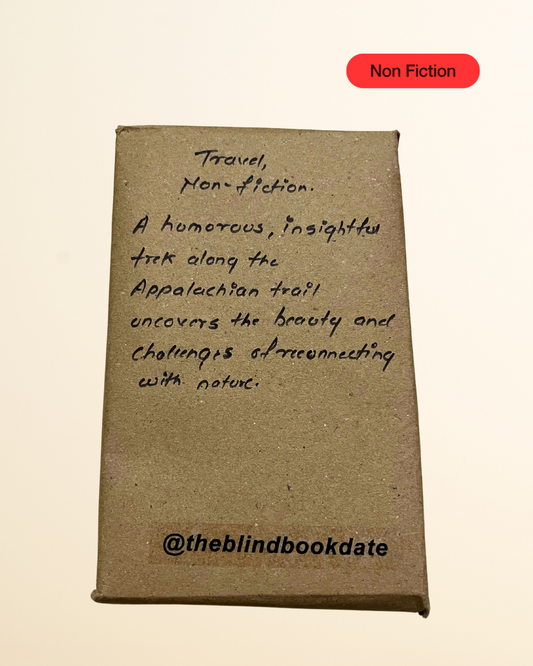 Non Fiction
Travel,
Non-fiction.
A humorous, insightful
trek along the
Appalachian trail
uncovers the beauty and
challenges of reconnecting
with nature.
@theblindbookdate